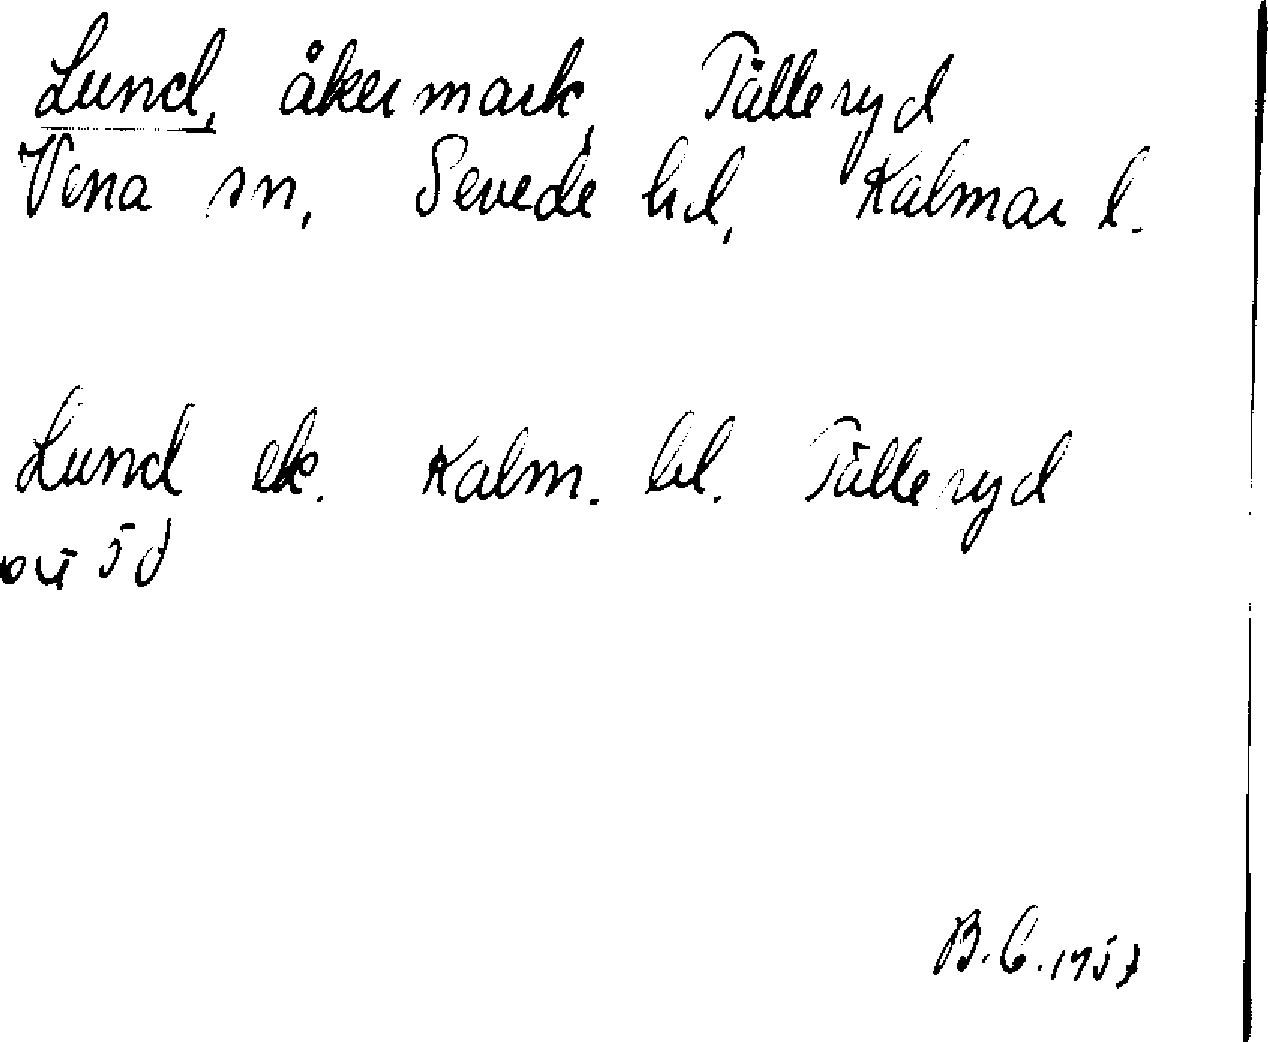 Lund, åkermark, Tälleryd
Vena sn, Sevede hd, Kalmar l.
Lund ek. Kalm. bl. Tälleryd
B.C. 1957